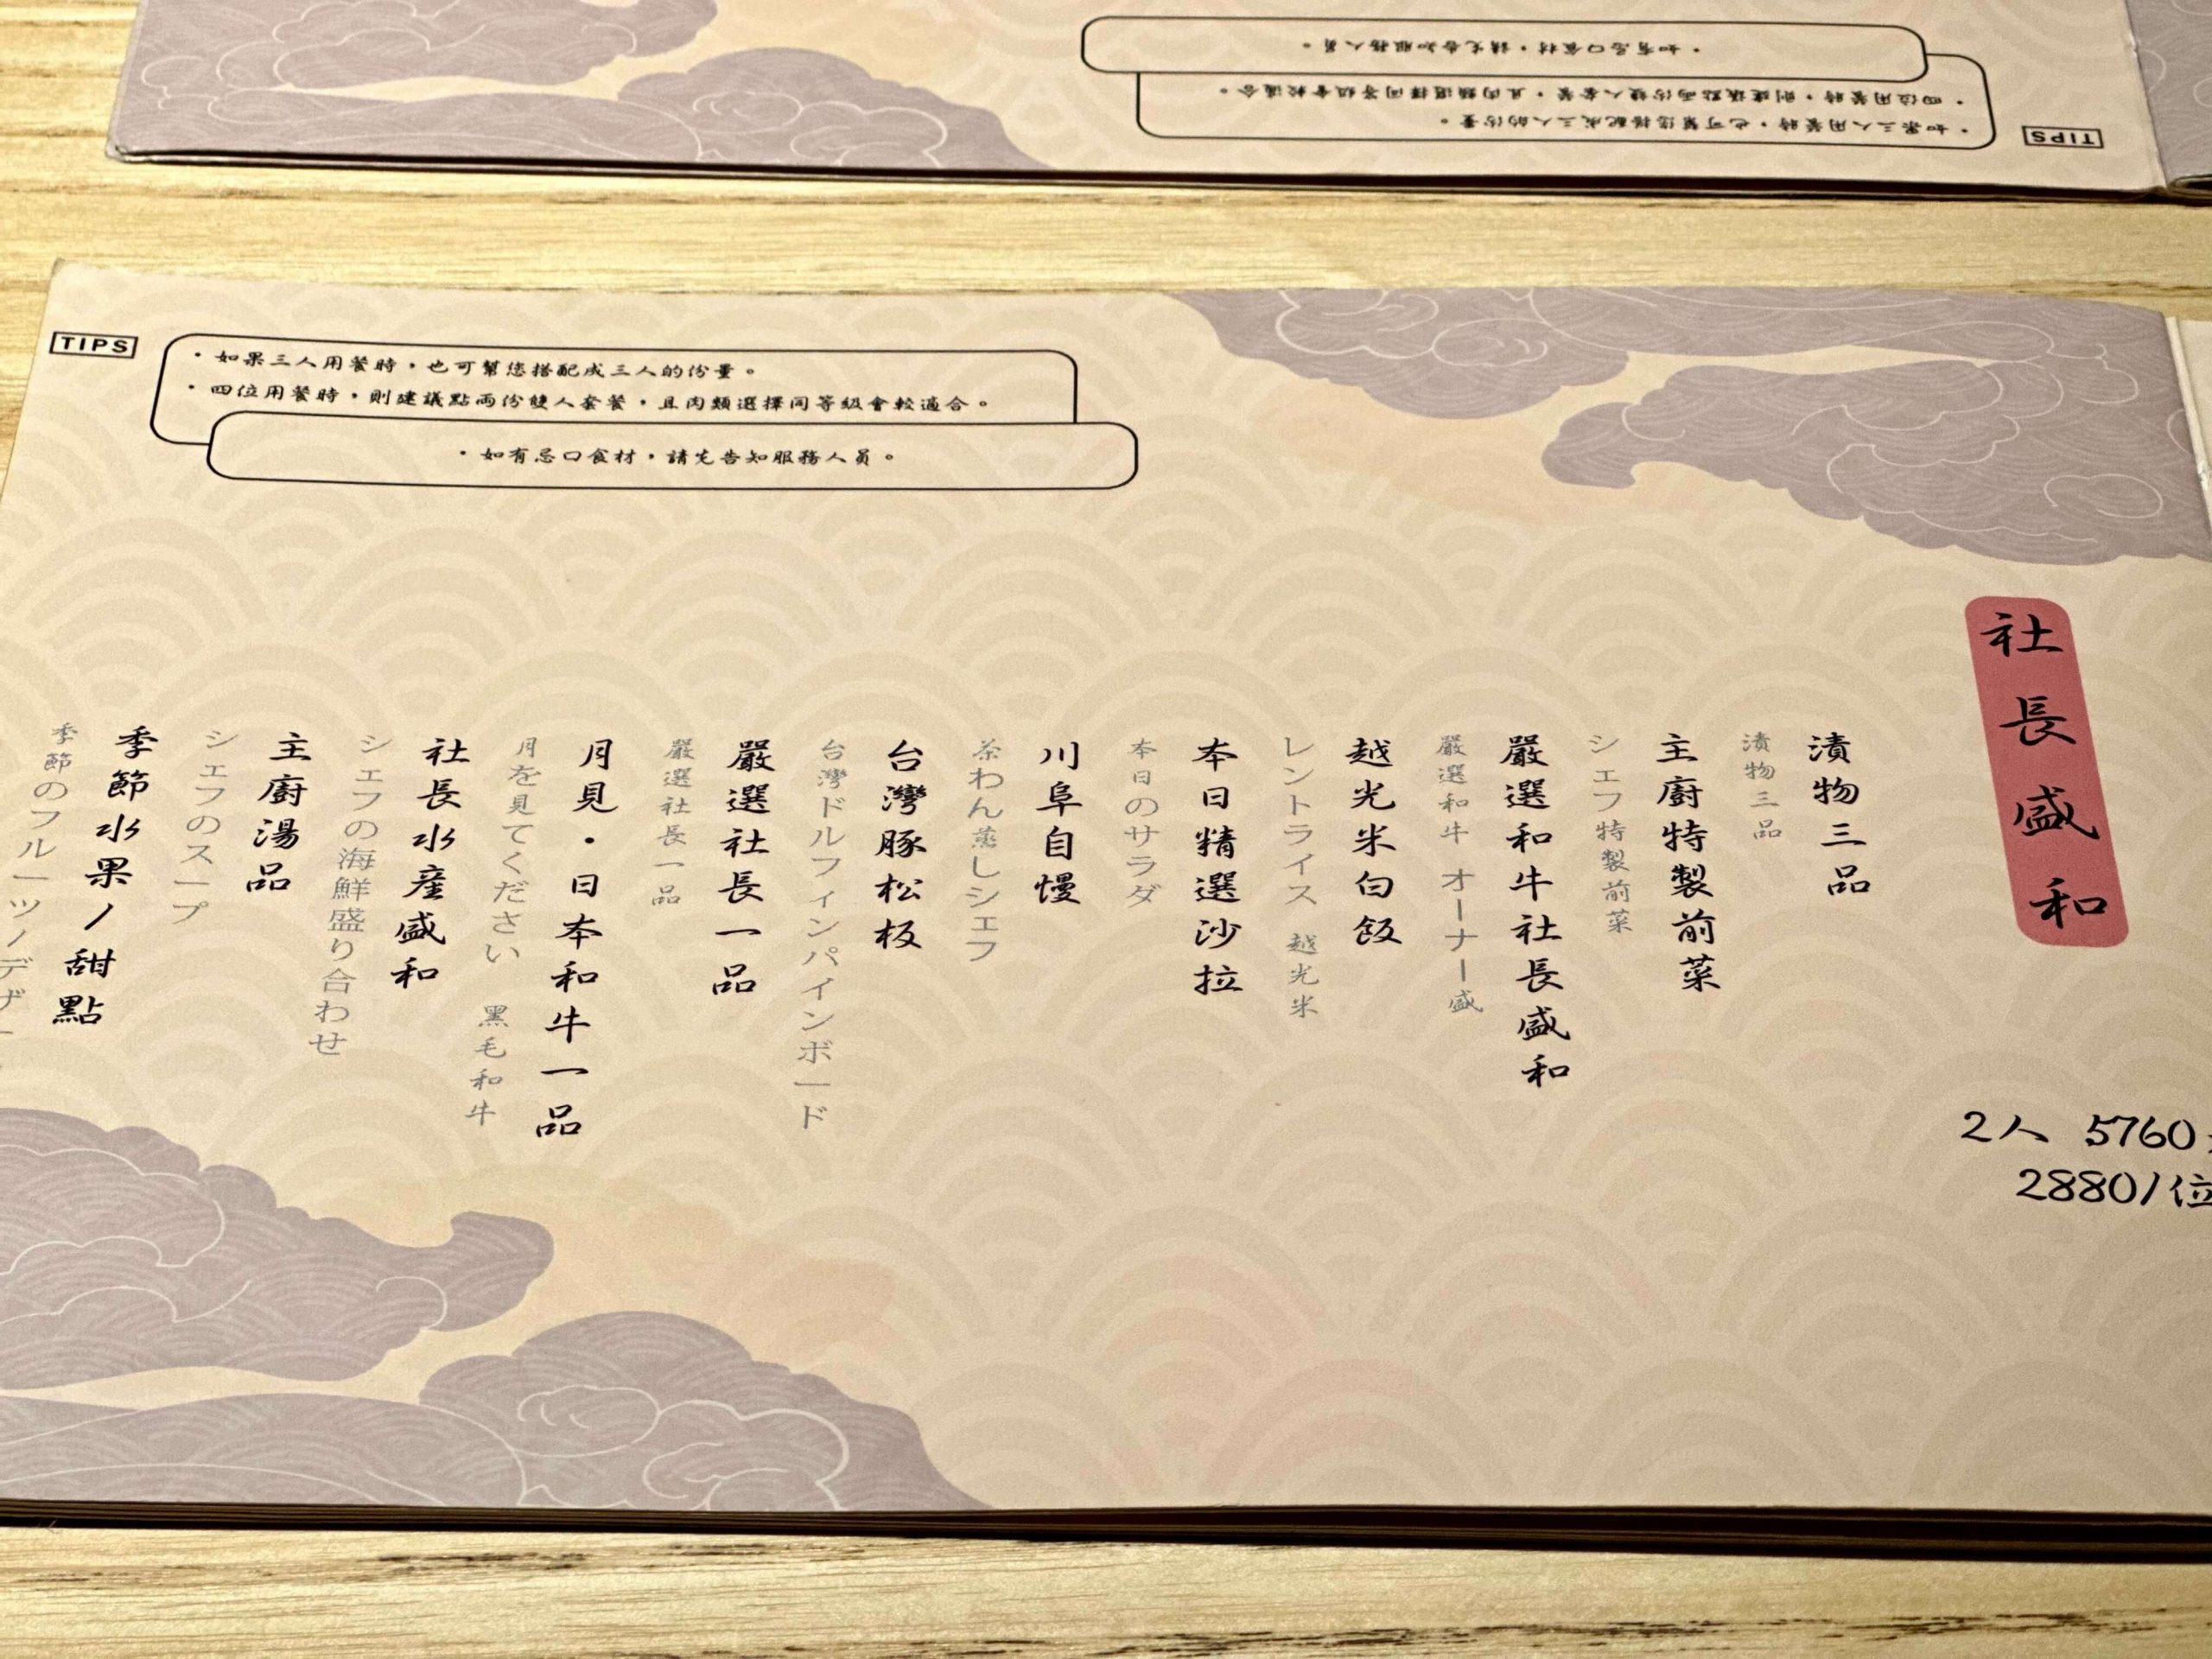 TIPS
・如果三人用餐時，也可幫您搭配成三人的份量。
・四位用餐時，則建議點兩份雙人套餐，且肉類選擇同等級會較適合。
・如有忌口食材，請先告知服務人員。
社長盛和
2人 5760
2880/位
漬物三品
漬物三品
主廚特製前菜
シェフ特製前菜
嚴選和牛社長盛和
嚴選和牛 オーナー盛
越光米白飯
レントライス 越光米
本日精選沙拉
本日のサラダ
川阜自慢
茶わん蒸しシェフ
台灣豚松板
台灣ドルフィンパインボード
嚴選社長一品
嚴選社長一品
月見・日本和牛一品
月を見てください 黑毛和牛
社長水產盛和
シェフの海鮮盛り合わせ
主廚湯品
シェフのスープ
季節水果/甜點
季節のフルーツ/デザー
TIPS
・如果三人用餐時，也可幫您搭配成三人的份量。
・四位用餐時，則建議點兩份雙人套餐，且肉類選擇同等級會較適合。
・如有忌口食材，請先告知服務人員。